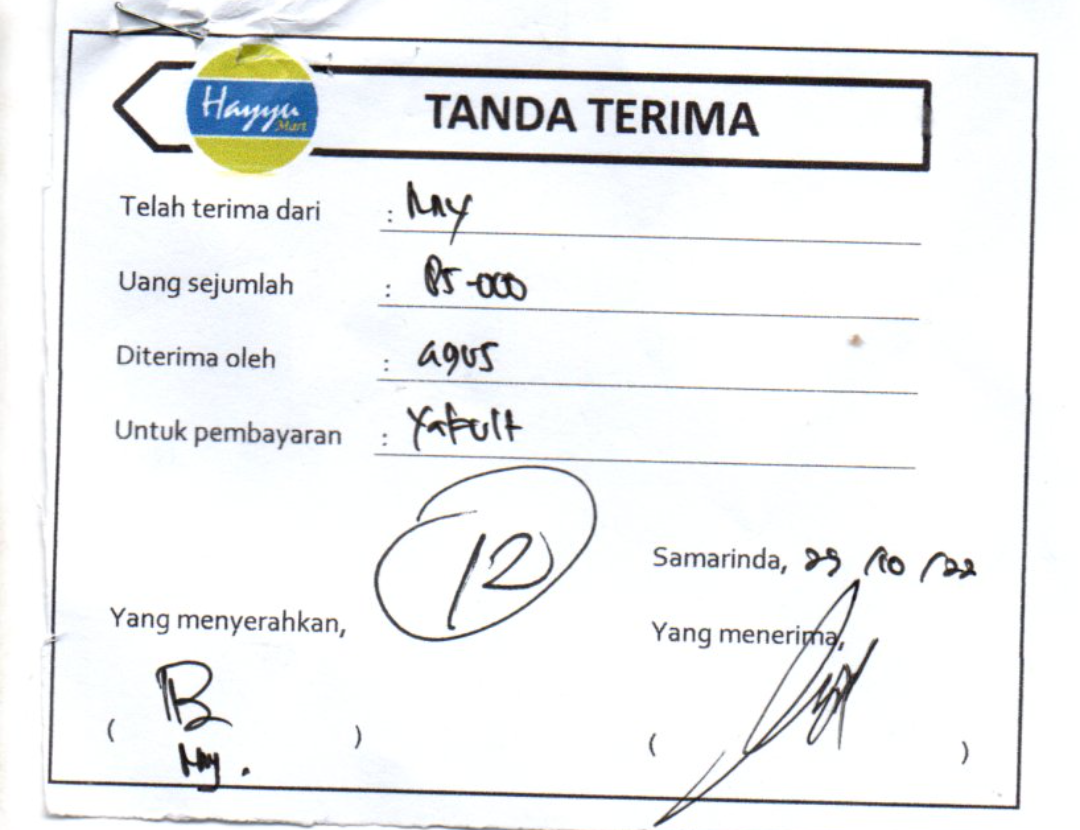 Hayyu
Mart
TANDA TERIMA
Telah terima dari : May
Uang sejumlah : 85-000
Diterima oleh : agus
Untuk pembayaran : Yakult
12
Samarinda, 29/10/22
Yang menyerahkan,
Yang menerima,
( )
( )
May.